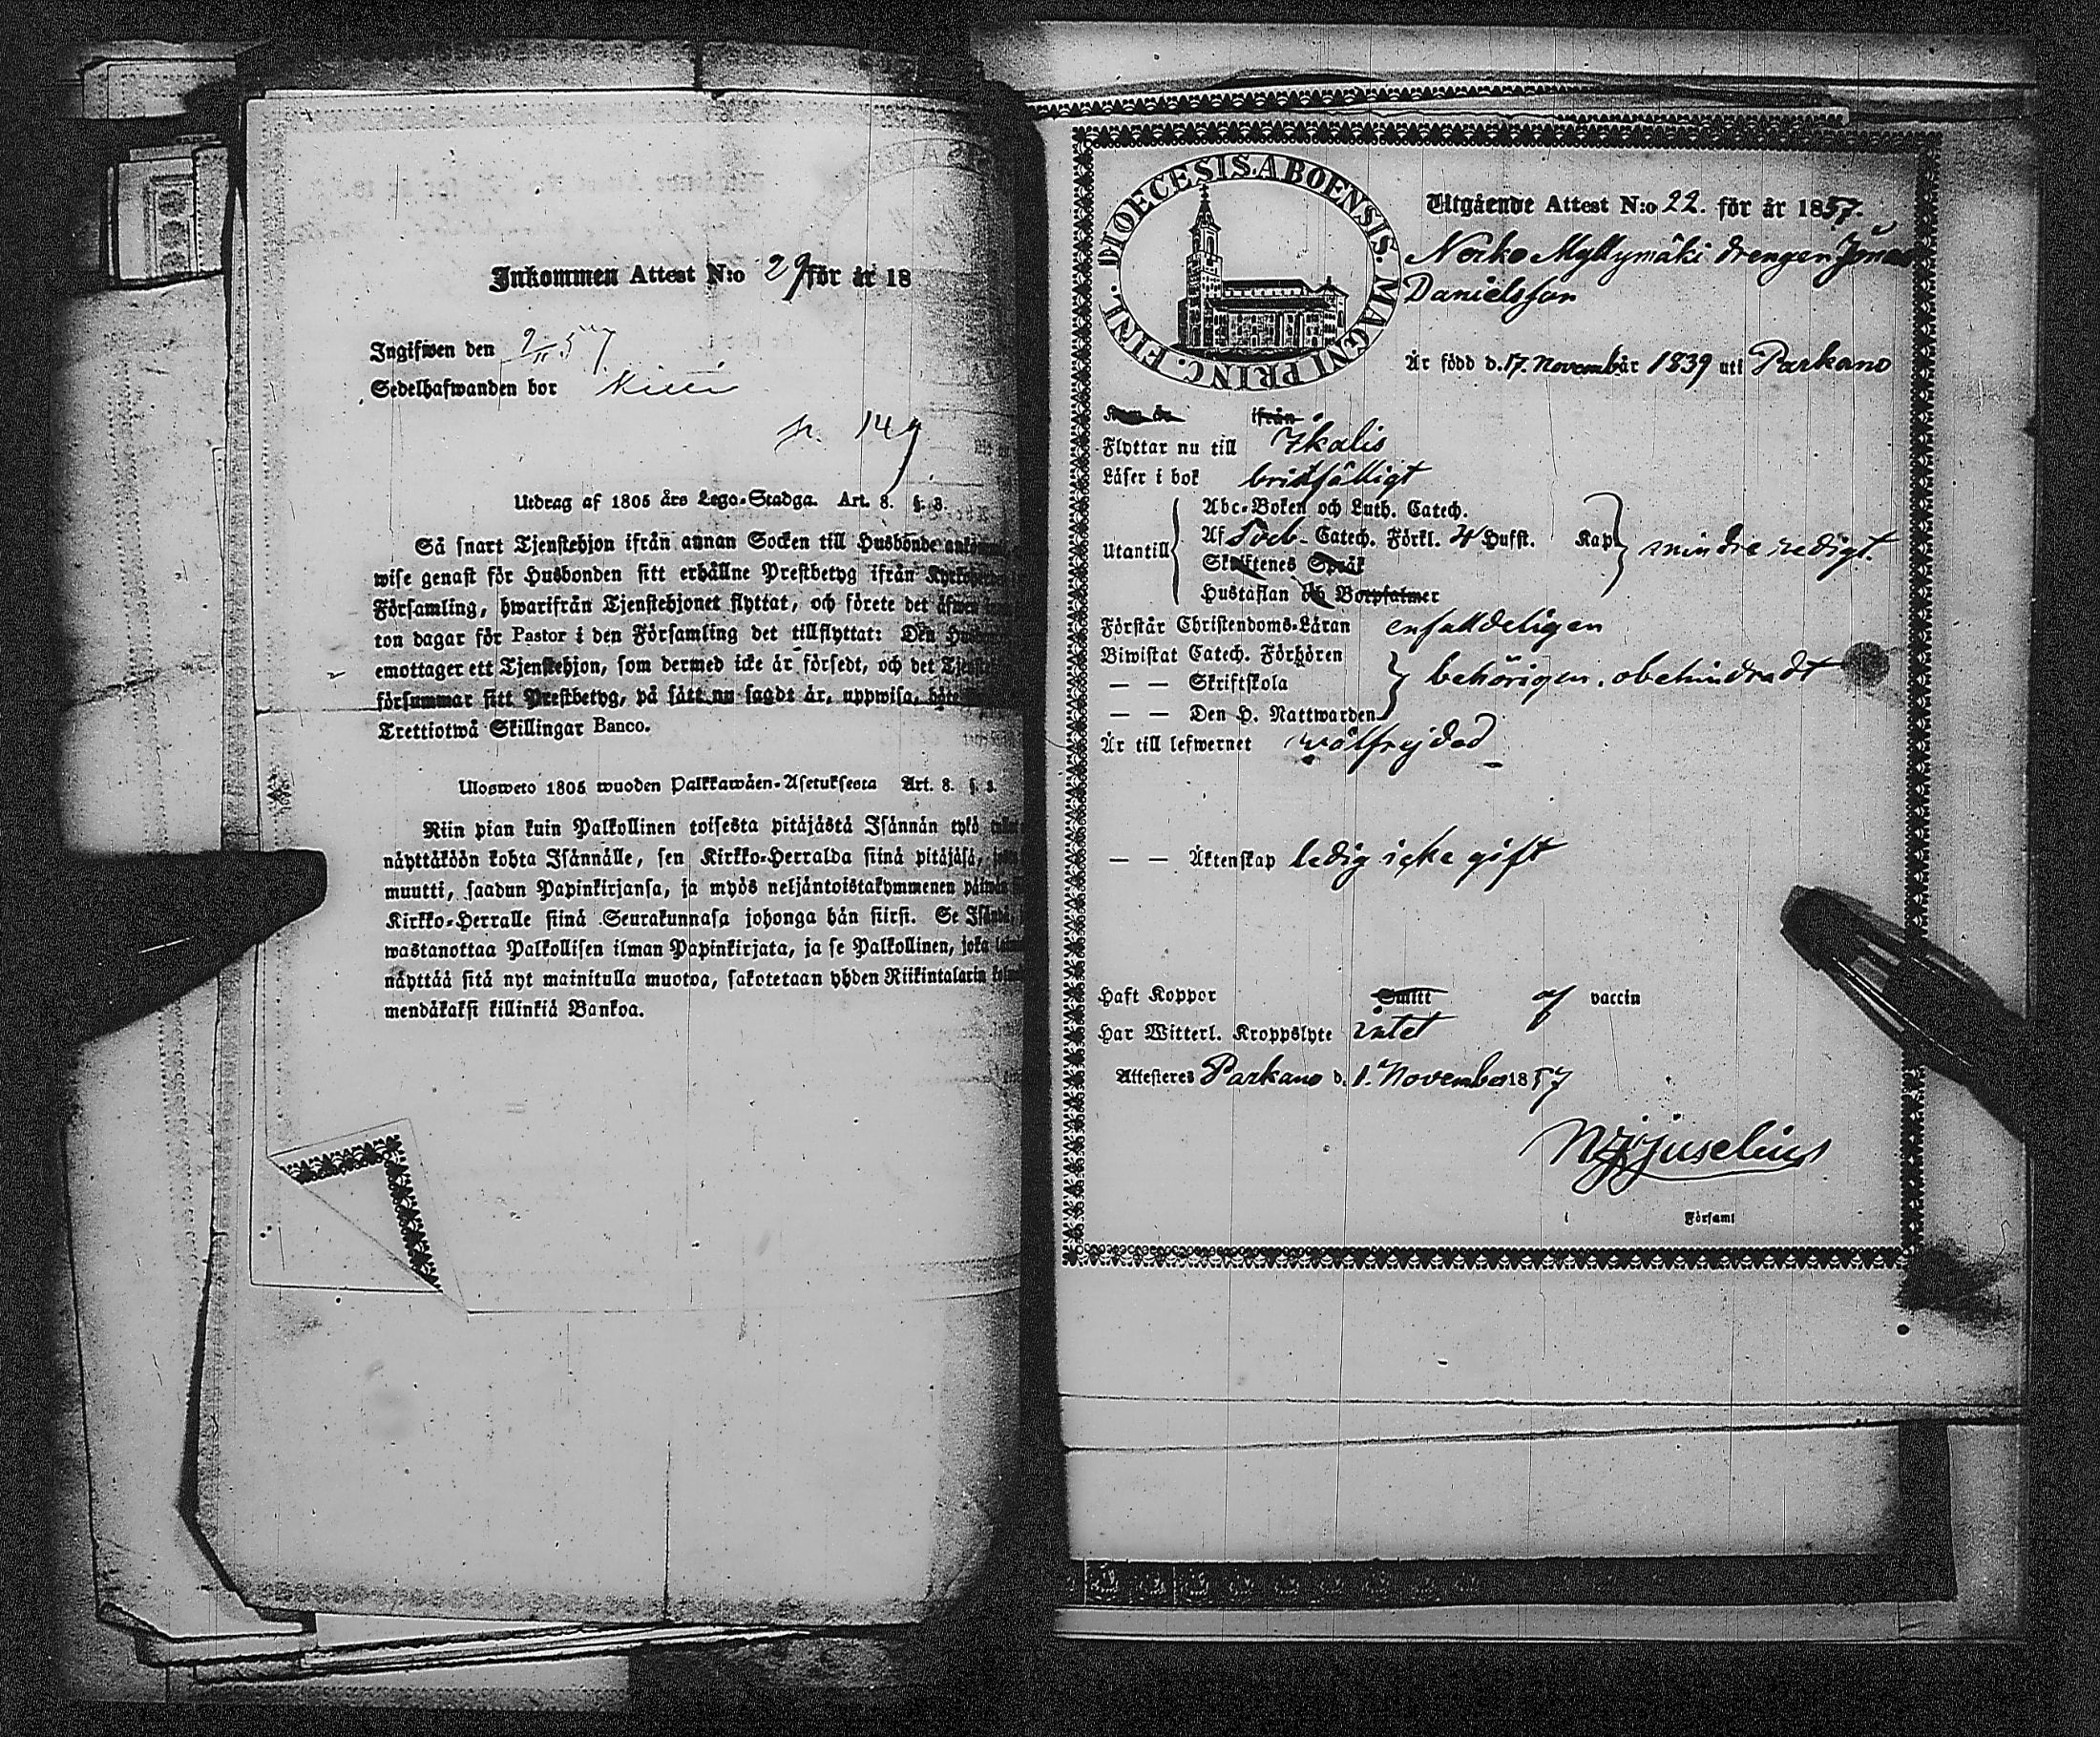 Inkommen Attest N:o 29 för år 18
Ingifwen den 9/11 57
Sedelhafwanden bor
p. 149
Utdrag af 1805 års Lego-Stadga. Art. 8. §. 3.
Så snart Tjenstehjon ifrån annan Socken till Husbonde
wise genast för Husbonden sitt erhållne Prestbetyg ifrån
Församling, hwarifrån Tjenstehjonet flyttat, och förete det äfwen
ton dagar för Pastor i den Församling det tillflyttat: Den
emottager ett Tjenstehjon, som dermed icke är försedt, och det
försummar sitt Prestbetyg, på sätt nu sagdt är, uppwisa,
Trettiotwå Skillingar Banco.
Ulosweto 1805 wuoden Palkkawäen-Asetuksesta Art. 8. §. 3.
Niin pian kuin Palkollinen toisesta pitäjästä Isännän tykö
näyttäköön kohta Isännälle, sen Kirkko-Herralda siinä pitäjäsä,
muutti, saadun Papinkirjansa, ja myös neljäntoistakymmenen
Kirkko-Herralle siinä Seurakunnasa johonga hän siirsi. Se
wastanottaa Palkollisen ilman Papinkirjata, ja se Palkollinen, joka
näyttää sitä nyt mainitulla muotoa, sakotetaan yhden Riikintalarin
mendäkaksi killinkiä Bankoa.
DIOECESIS. ABOENSIS. MAGNI PRINC. FINL.
Utgående Attest N:o 22. för år 1857.
Norko Myllymäki drengen Jonas
Danielsson
Är född d. 17. novembär 1839 uti Parkano
ifrån
Flyttar nu till Ikalis
Läser i bok bristfälligt
Utantill Abc-Boken och Luth. Catech.
Af Sveb. Catech. Förkl. 4 Hufst. Kap mindre redigt.
Skriftenes Språk
Hustaflan och Botpsalmer
Förstår Christendoms-Läran enfaldeligen
Biwistat Catech. Förhören
— — Skriftskola behörigen, obehindradt
— — Den H. Nattwarden
Är till lefwernet wälfrejdad
— — Äktenskap ledig icke gift
Haft Koppor Smitt af vaccin
Har Witterl. Kroppslyte intet
Attesteres Parkano d. 1. November 1857
juselius
i Församl